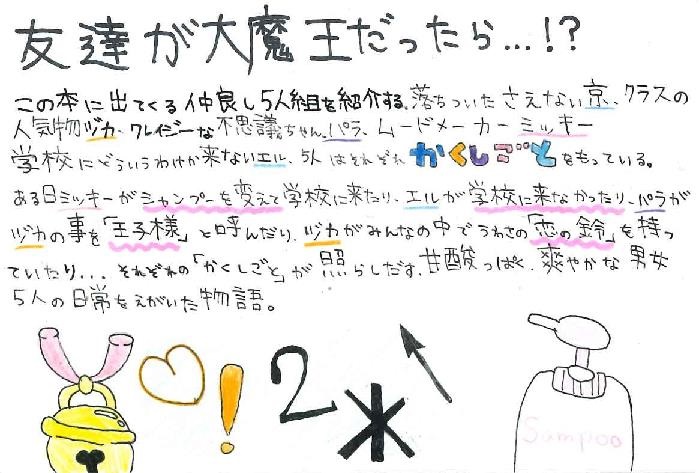 友達が大魔王だったら…!?
この本に出てくる仲良し5人組を紹介する。落ちついたさえない京、クラスの
人気物ヅカ、クレイジーな不思議ちゃん、パラ、ムードメーカーミッキー
学校にどういうわけか来ないエル、5人はそれぞれかくしごとをもっている。
ある日ミッキーがシャンプーを変えて学校に来たり、エルが学校に来なかったり、パラが
ヅカの事を「王子様」と呼んだり、ヅカがみんなの中でうわさの「恋の鈴」を持っ
ていたり... それぞれの「かくしごと」が照らしだす、甘酸っぱく、爽やかな男女
5人の日常をえがいた物語。
! 2 *
Sampoo